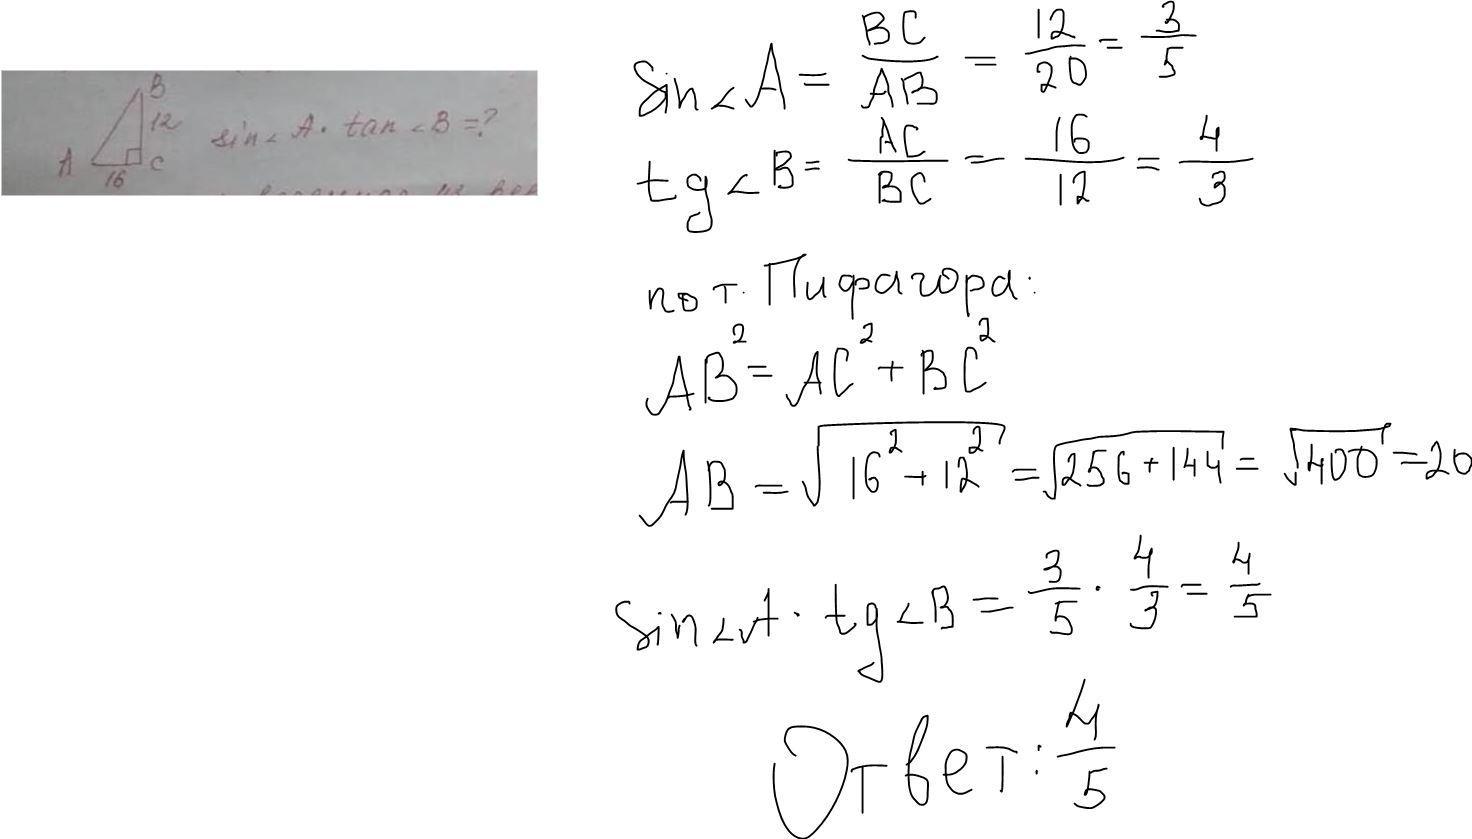 B
12
A
16
C
sin∠A · tan∠B = ?
sin∠A = BC/AB = 12/20 = 3/5
tg∠B = AC/BC = 16/12 = 4/3
по т. Пифагора:
AB² = AC² + BC²
AB = √(16² + 12²) = √(256 + 144) = √400 = 20
sin∠A · tg∠B = 3/5 · 4/3 = 4/5
Ответ: 4/5